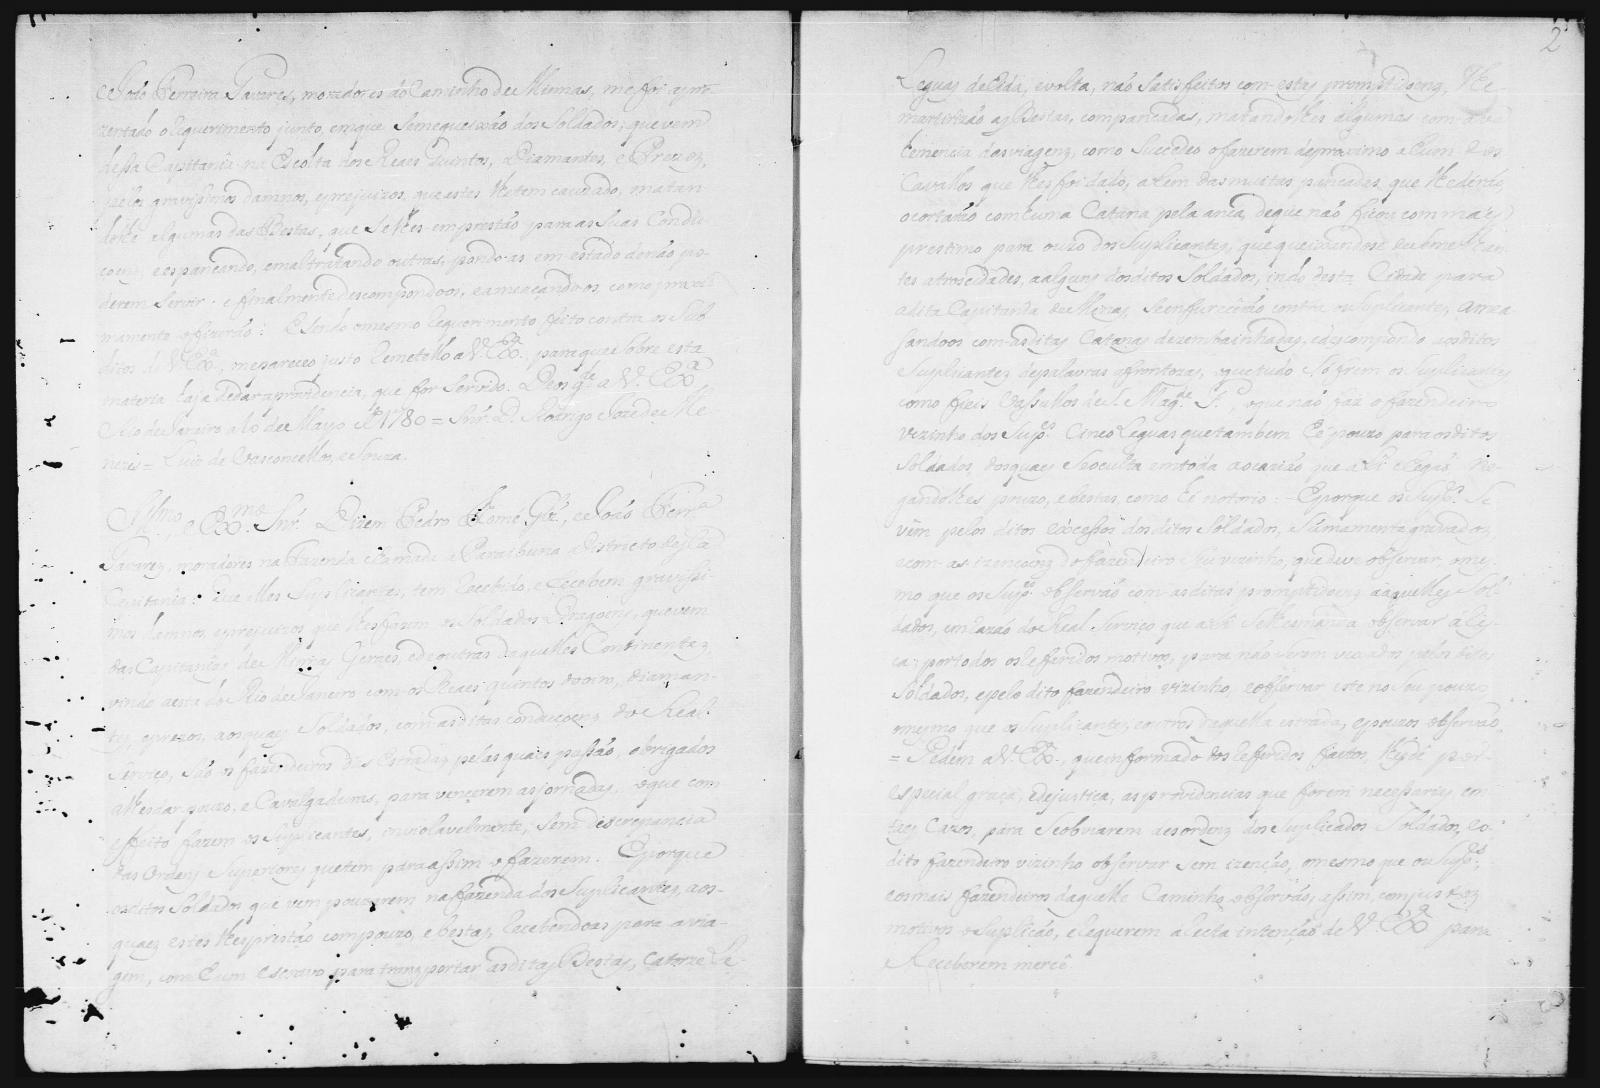 João Ferreira Tavares, moradores do Caminho de Minnas, me foi apre-
zentado o Requerimento junto, em que Semequeixão dos Soldados, que vem
dessa Capittania na Escolta dos Reaes Quintos, Diamantes, e Prezos,
pelos gravissimos damnos, e prejuizos, que estes lhe tem cauzado, matan-
dolhe algumas das Bestas, que Selhes emprestão para as Suas Condu-
çoens, e espancando, emaltratando outras, pondo-as em estado de não po-
derem Servir: e finalmente descompondo-os, e ameaçando-os, como proxi-
mamente o fizerão: E Sendo o mesmo Requerimento feito contra os Sub
ditos de V. Exª., me pareceo justo Remetello a V. Exª., para que Sobre esta
materia haja de dar a providencia, que for Servido. Deos gde a V. Exª
Rio de Janeiro a 10 de Mayo de 1780 = Snr. D. Rodrigo Jozé de Me-
nezes = Luiz de Vasconcellos, e Souza.
Illmo, e Exmo. Snr. Dizem Pedro Thomé Glz, e João Ferra
Tavarez, moradores na Fazenda chamada a Paraibuna Districto desta
Capitania: Que elles Suplicantes, tem Recebido, e recebem gravissi-
mos damnos, e prejuizos que lhes fazem os Soldados Dragoens, que vem
das Capitanîas de Minas Geraes, e de outras daquelles Continentes,
vindo a esta do Rio de Janeiro com os Reaes quintos do ouro, diaman-
tes, e prezos, aos quaes Soldados, com as ditas conducçoens do Real
Serviço, São os fazendeiros das Estradas pelas quaes passão, obrigados
a lhes dar pouzo, e Cavalgaduras, para vencerem as jornadas, o que com
effeito fazem os Suplicantes, inviolavelmente, Sem discrepancia
das Ordens Superiores que tem para assim o fazerem. E porque
os ditos Soldados que vem pouzarem na fazenda dos Suplicantes, aos
quaes estes lhes prestão com pouzo, e bestas, Recebendo as para a via-
gem, com hum escravo para transportar as ditas Bestas, Catorze Le-
2
Leguas de hida, e volta, não Satisfeitos com estas promptidoens, lhe
martirizão as Bestas, com pancadas, matandolhes algumas com a vee
hemencia das viagens, como Succedeo o fazerem de proximo a hum dos
Cavallos que lhes foi dado, a lém das muitas pancadas que lhe derão,
o cortarão com huma Catana pela anca, de que não ficou com mais
prestimo para o uzo dos Suplicantes, que queixandose de Semelhan-
tes atrocidades, a alguns dos ditos Soldados, indo desta Cidade para
a dita Capitania de Minas, Se enfurecêrão contra os Suplicantes, amea-
sandoos com as ditas Catanas dezembainhadas, e descompondo aos ditos
Suplicantes de palavras afrontozas, o que tudo Sofrem os Suplicantes
como fieis Vassallos de S. Magde. F., o que não faz o fazendeiro
Vizinho dos Supes. Cinco Leguas que tambem hé pouzo para os ditos
Soldados, dos quaes Se oculta em toda a ocazião que a hi chegão ne-
gandolhes pouzo, e bestas, como hé notorio: E porque os Supes. Se
vêm pelos ditos excessos dos ditos Soldados, Sumamente gravados,
e com as izençoens do fazendeiro Seu vizinho, que deve observar, o mes-
mo que os Supes. observão com as ditas promptidoens áaquelles Sol-
dados, em razão do Real Serviço que a elle Selhe manda observar á Ris-
ca: por todos os Refferidos motivos, para não Serem vexados pelos ditos
Soldados, e pelo dito fazendeiro vizinho, e observar este no Seu pouzo
o mesmo que os Suplicantes, e outros daquella estrada, e pouzos observão.
= Pedem a V. Exª., que informado dos Refferidos factos, lhes dê por
especial graça, e de justiça, as providencias que forem necessarias em
taes Cazos, para Se obviarem desordens dos Suplicados Soldados, e o
dito fazendeiro vizinho observar Sem izenção, o mesmo que os Supes.
e os mais fazendeiros daquelle Caminho observão, assim, com justos
motivos o Suplicão, e Requerem a Recta intenção de V. Exª para
Receberem mercê.